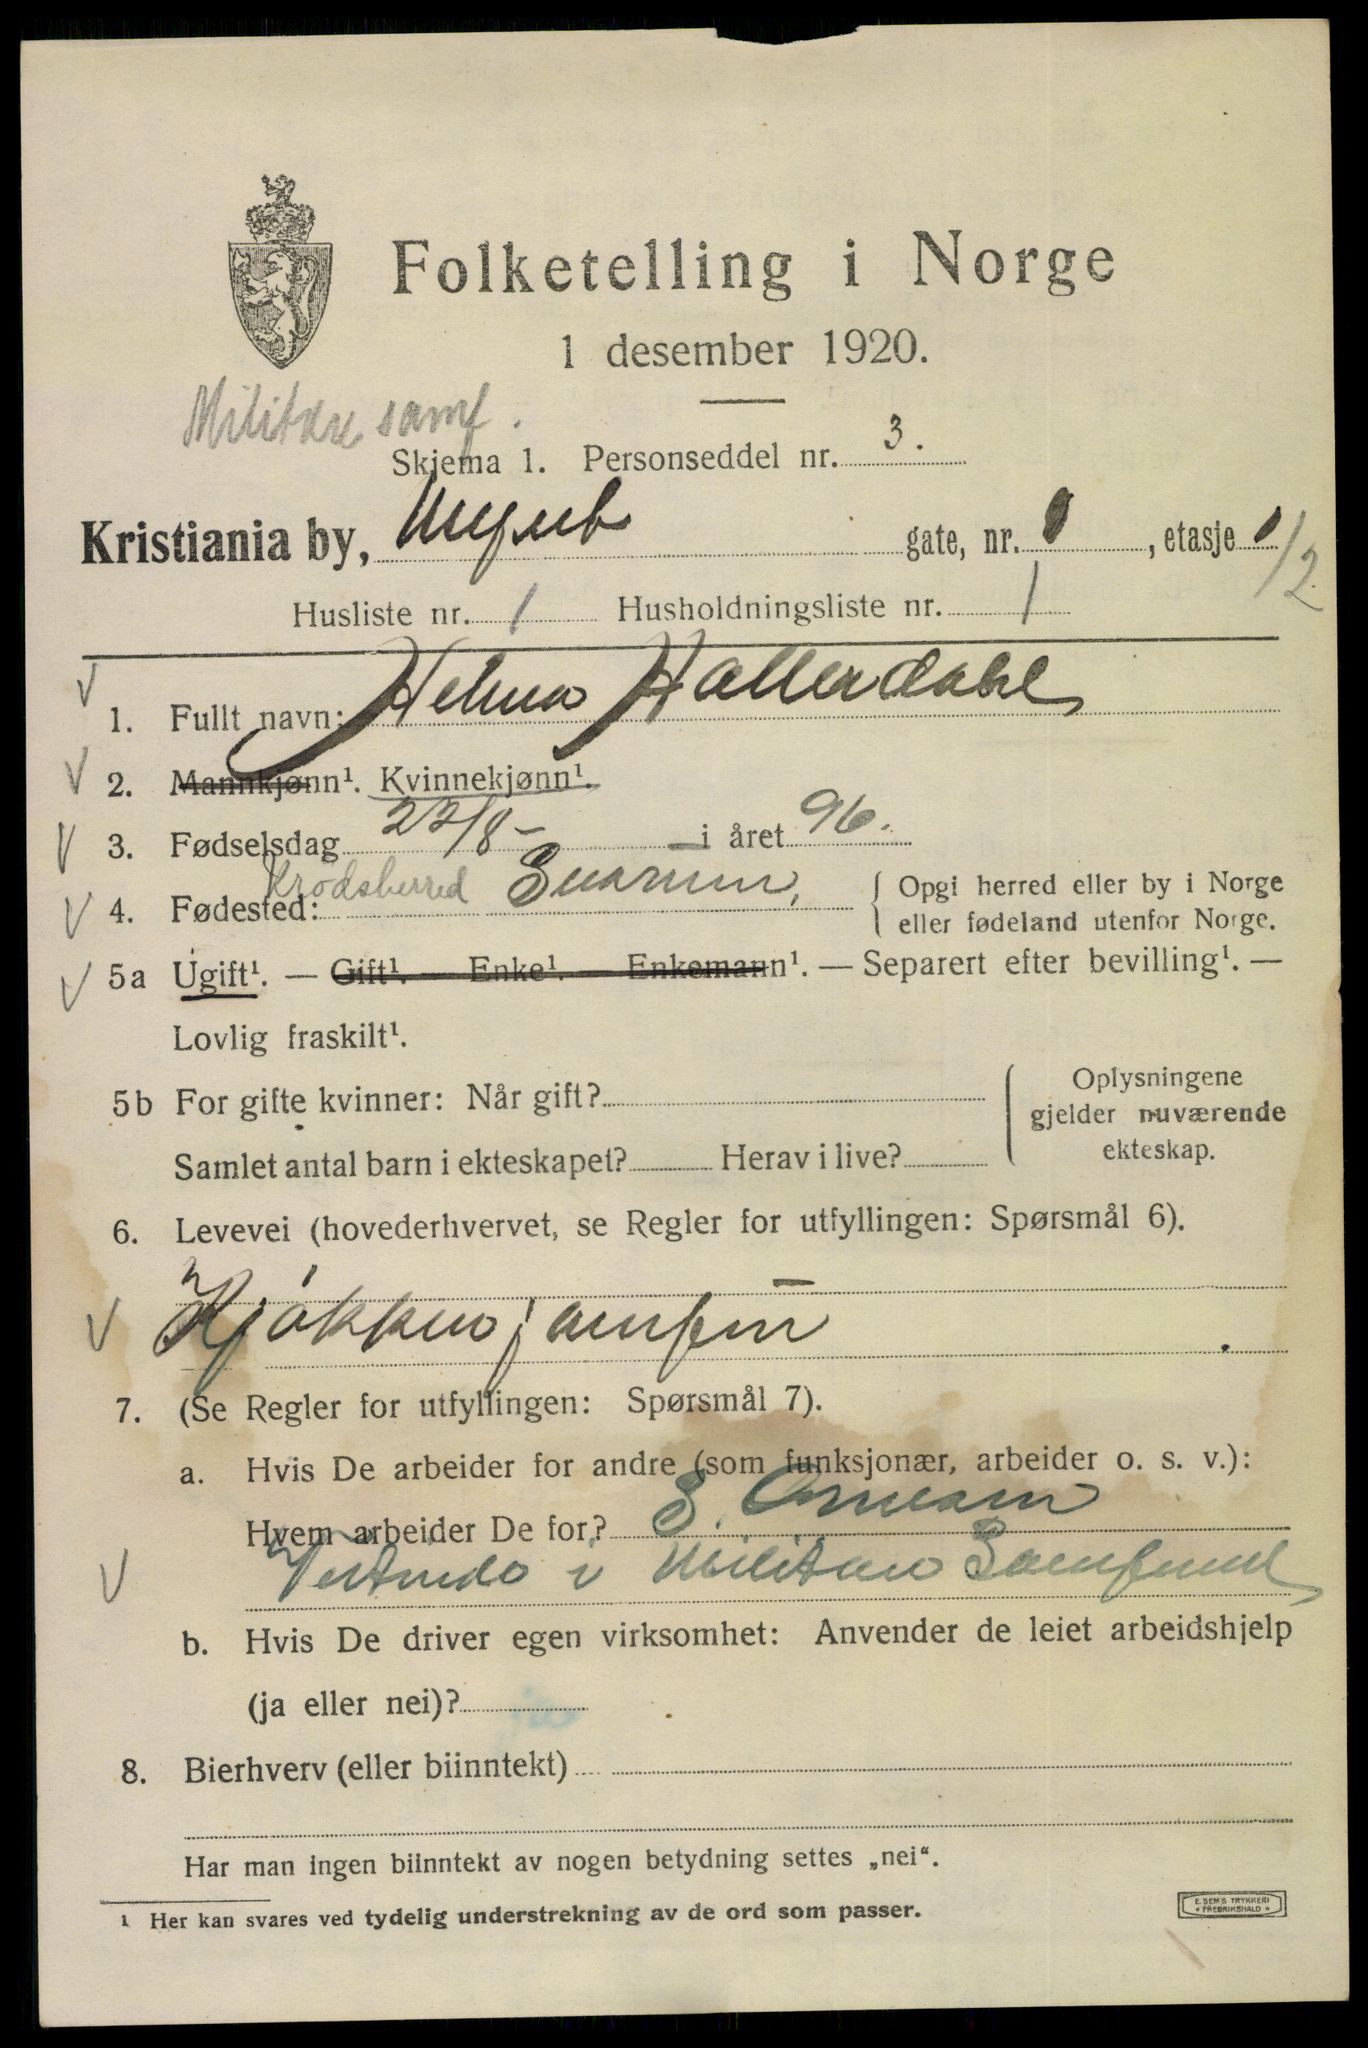 Folketelling i Norge
1 desember 1920.
Militære samf.
Skjema 1. Personseddel nr. 3.
Kristiania by, gate, nr. , etasje 1/2
Husliste nr. 1 Husholdningsliste nr. 1
1. Fullt navn: Helma Hallerdahl
2. Mannkjønn¹. Kvinnekjønn¹.
3. Fødselsdag 22/8 - i året 96.
4. Fødested: Krødsherred Snarum, { Opgi herred eller by i Norge
eller fødeland utenfor Norge.
5a Ugift¹. — Gift¹. — Enke¹. — Enkemann¹. — Separert efter bevilling¹. —
Lovlig fraskilt¹.
5b For gifte kvinner: Når gift?
Samlet antal barn i ekteskapet? Herav i live?
Oplysningene
gjelder nuværende
ekteskap.
6. Levevei (hovederhvervet, se Regler for utfyllingen: Spørsmål 6).
Kjøkkenjomfru
7. (Se Regler for utfyllingen: Spørsmål 7).
a. Hvis De arbeider for andre (som funksjonær, arbeider o. s. v.):
Hvem arbeider De for? S.
i Militære Samfund
b. Hvis De driver egen virksomhet: Anvender de leiet arbeidshjelp
(ja eller nei)?
8. Bierhverv (eller biinntekt)
Har man ingen biinntekt av nogen betydning settes „nei“.
¹ Her kan svares ved tydelig understrekning av de ord som passer.
E. SEM'S TRYKKERI
FREDRIKSHALD